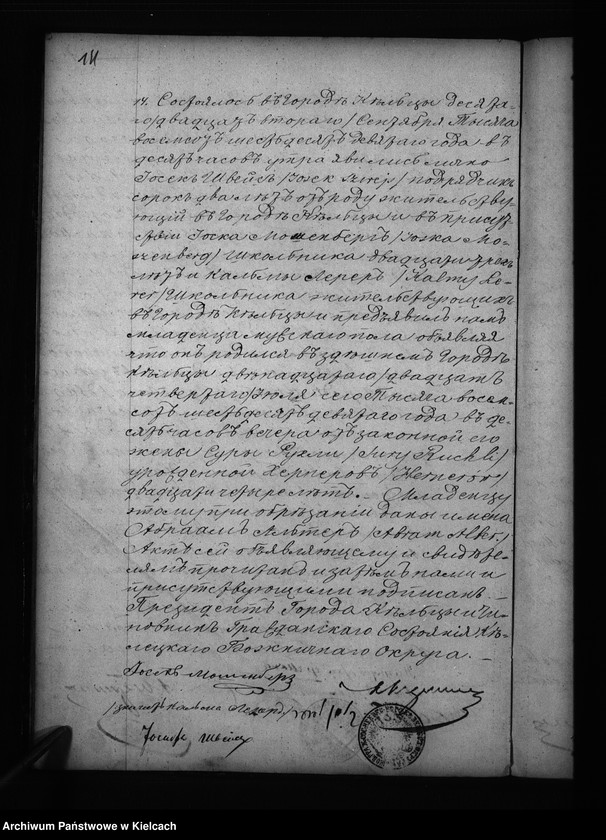 14
14. Состоялось въ городѣ Кѣльцы десята-
го/двадцать втораго/Сентября тысяча
восемсотъ шестьдесятъ девятаго года въ
десять часовъ утра явились лично
Госекъ Швейсъ подрядчикъ
сорокъ два лѣтъ отъ роду жительству-
ющій въ городѣ Кѣльцы и въ присут-
ствіи Госка Мошенбергъ /Joska Mo-
szenberg/ Школьника двадцати трехъ
лѣтъ и Кальмы Лереръ /Kalmy Le-
rer/ Школьника жительствующихъ
въ городѣ Кѣльцы и предъявилъ намъ
младенца мужскаго пола объявляя
что онъ родился въ здѣшнемъ городѣ
Кѣльцы двѣнадцатаго/двадцать
четвертаго/Іюля сего тысяча восем-
сотъ шестьдесятъ девятаго года въ де-
сять часовъ вечера отъ законной его
жены Суры Рухли /Sury Ruchli/
урожденной Хернеровъ
двадцати четырехъ лѣтъ. — Младенцу
этому при обрѣзаніи даны имена
Абраамъ Альтеръ /Abram Alter/
Актъ сей объявляющему и свидѣте-
лямъ прочитанъ и затѣмъ нами и
присутствующими подписанъ. —
Президентъ Города Кѣльцы и Чи-
новникъ Гражданскаго Состоянія Кѣ-
лецкаго Божничнаго Округа. —
Госекъ Мошенберг
Госекъ Швейс
Archiwum Państwowe w Kielcach